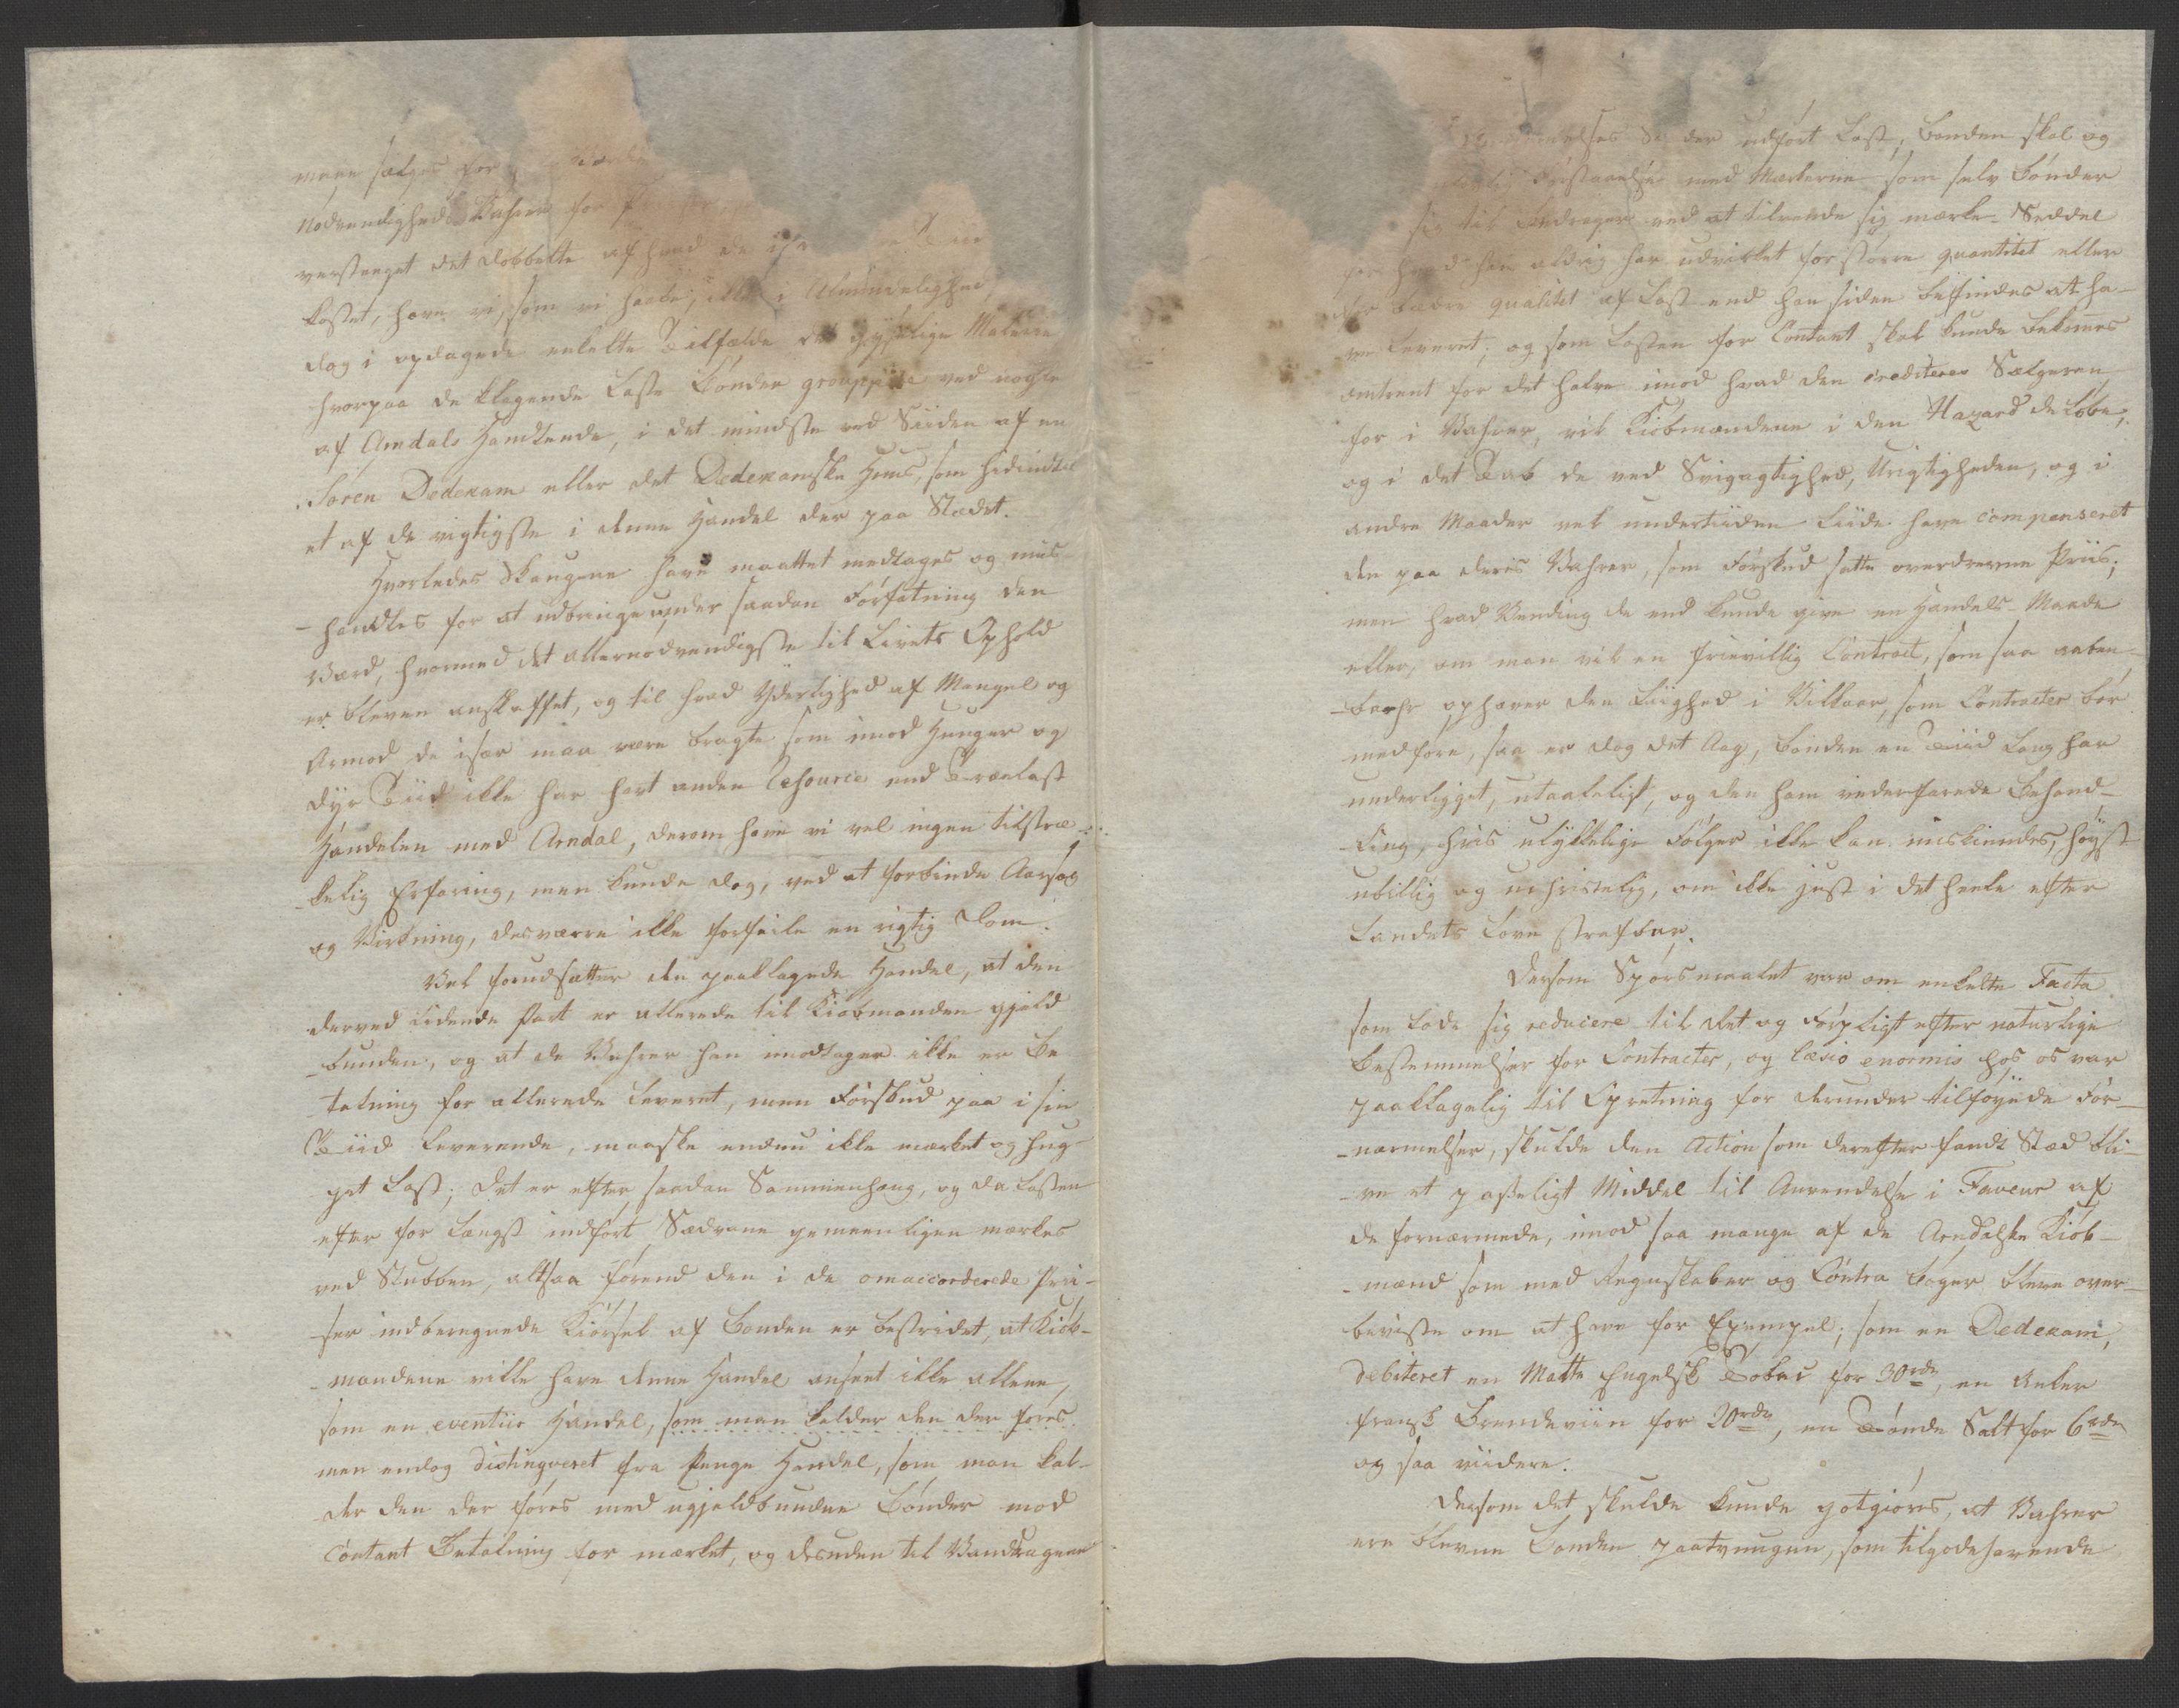 mene sælges for
Nødvendigheds Vahrer for
verstenget det dobbelte af hvad de
kostet, have vi, som vi haabe, ikke i Almindelighed,
dog i opdagede enkelte Tilfælde det gyselige Malerie
hvorpaa de klagende Laste Bønder grouppere ved nogle
af Arndals Handlende, i det mindste ved Siiden af en
Søren Dedekam eller det Dedekamske Huus, som hidindtil
et af de vigtigste i denne Handel der paa Stædet.
Hvorledes Skougene have maattet medtages og mis-
-handles for at udbringe under saadan Forfatning den
Værd, hvormed det allernødvendigste til Livets Ophold
er bleven anskaffet, og til hvad Yderlighed af Mangel og
Armod de især maa være bragte som imod Hunger og
dyr Tiid ikke har havt anden Resource end Trælast
Handelen med Arndal, derom have vi vel ingen tilstræ-
-kelig Erfaring, men kunde dog, ved at forbinde Aarsag
og Virkning, desværre ikke forfeile en rigtig Dom.
Vel forudsætter den paaklagede Handel, at den
derved lidende Part er allerede til Kiøbmanden gjæld
-bunden, og at de Vahrer han modtager ikke er Be
talning for allerede leveret, men Forskud paa i sin
Tiid leverende, maaske endnu ikke mærket og hug-
get Last; det er efter saadan Sammenhæng, og da Lasten
efter for længst indført Sædvane gemeenligen mærkes
ved Stubben, altsaa førend den i de omaccorderede Pri-
ser indberegnede Kiørsel af Bonden er bestridet, at Kiøb-
-mændene ville have denne Handel anseet ikke allene,
som en eventür Handel, som man kalder den der føres
men endog distingveret fra Penge Handel, som man kal-
der den der føres med ugjældbundne Bønder mod
Contant Betalning for mærket, og desuden til Vandragene
der udført Last; Bonden skal og
Forstaaelse med Mærkerne som selv Bønder
sig til Bedrager ved at tilvende sig mærke-Seddel
for hvad han aldrig har udvirket for større quantitet eller
for bedre qualitet af Last end han siden befindes at ha-
ve leveret, og som Lasten for Contant skal kunde bekommes
omtrent for det halve imod hvad den crediteres Sælgeren
for i Vahrer, vil Kiøbmændene i den Hazard de løbe,
og i det Tab de ved Svigagtighed, Urigtigheden, og i
andre Maader vel undertiiden liide have compenseret
den paa deres Vahrer, som Forskud satte overdrevne Priis;
men hvad Vending de end kunde give en Handels-Maade
eller, om man vil en frievillig Contract, som saa aaben-
-bahr ophæver den Liighed i Villkaar, som Contracter bør
medføre, saa er dog det Aag, Bonden en Tiid lang har
underligget, utaaleligt, og den ham vederfarede Behand-
ling, hvis ulykkelige Følger ikke kan miskiendes, høyst
ubillig og uchristelig, om ikke just i det heele efter
Landets Love strafbar.
Dersom Spørsmaalet var om enkelte Facta
som lode sig reducere til Ret og Forpligt efter naturlige
Bestemmelser for Contracter, og læsio enormis hos os var
paaklagelig til Opretning for derunder tilføyede For-
-nærmelser, skulde den Action som derefter fandt Stæd bli-
-ve et paßeligt Middel til Anvendelse i Faveur af
de fornærmede, imod saa mange af de Arndalske Kiøb-
-mænd som med Regnskaber og Contra Bøger bleve over-
beviiste om at have for Exempel; som en Dedekam,
debiteret en Matte Engelsk Tobac for 30rdr, en Anker
fransk Brændeviin for 20rdr, en Tønde Salt for 6rdr
og saa viidere.
Dersom det skulde kunde gotgiøres, at Vahrer
ere blevne Bonden paatvungen, som tilgodehavende